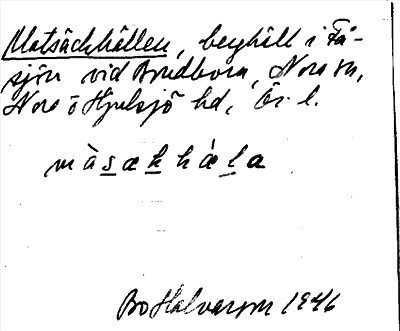 Matsäckhällen, berghäll i Få-
sjön vid Bredbora, Nora sn,
Nora o Hjulsjö hd, Ör. l.
màsækhàla
Bo Halvarson 1946